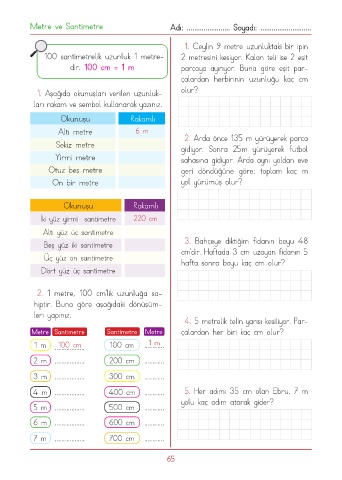 Metre ve Santimetre
Adı: ..................... Soyadı: .........................
100 santimetrelik uzunluk 1 metre-
dir. 100 cm = 1 m
1. Aşağıda okunuşları verilen uzunluk-
ları rakam ve sembol kullanarak yazınız.
Okunuşu Rakamlı
Altı metre 6 m
Sekiz metre
Yirmi metre
Otuz beş metre
On bir metre
Okunuşu Rakamlı
İki yüz yirmi santimetre 220 cm
Altı yüz üç santimetre
Beş yüz iki santimetre
Üç yüz on santimetre
Dört yüz üç santimetre
2. 1 metre, 100 cm'lik uzunluğa sa-
hiptir. Buna göre aşağıdaki dönüşüm-
leri yapınız.
Metre Santimetre Santimetre Metre
1 m 100 cm 100 cm 1 m
2 m ............... 200 cm ..........
3 m ............... 300 cm ..........
4 m ............... 400 cm ..........
5 m ............... 500 cm ..........
6 m ............... 600 cm ..........
7 m ............... 700 cm ..........
1. Ceylin 9 metre uzunluktaki bir ipin
2 metresini kesiyor. Kalan teli ise 2 eşit
parçaya ayırıyor. Buna göre eşit par-
çalardan herbirinin uzunluğu kaç cm
olur?
2. Arda önce 135 m yürüyerek parca
gidiyor. Sonra 25m yürüyerek futbol
sahasına gidiyor. Arda aynı yoldan eve
geri döndüğüne göre; toplam kaç m
yol yürümüş olur?
3. Bahçeye diktiğim fidanın boyu 48
cm'dir. Haftada 3 cm uzayan fidanın 5
hafta sonra boyu kaç cm olur?
4. 5 metrelik telin yarısı kesiliyor. Par-
çalardan her biri kaç cm olur?
5. Her adımı 35 cm olan Ebru, 7 m
yolu kaç adım atarak gider?
65